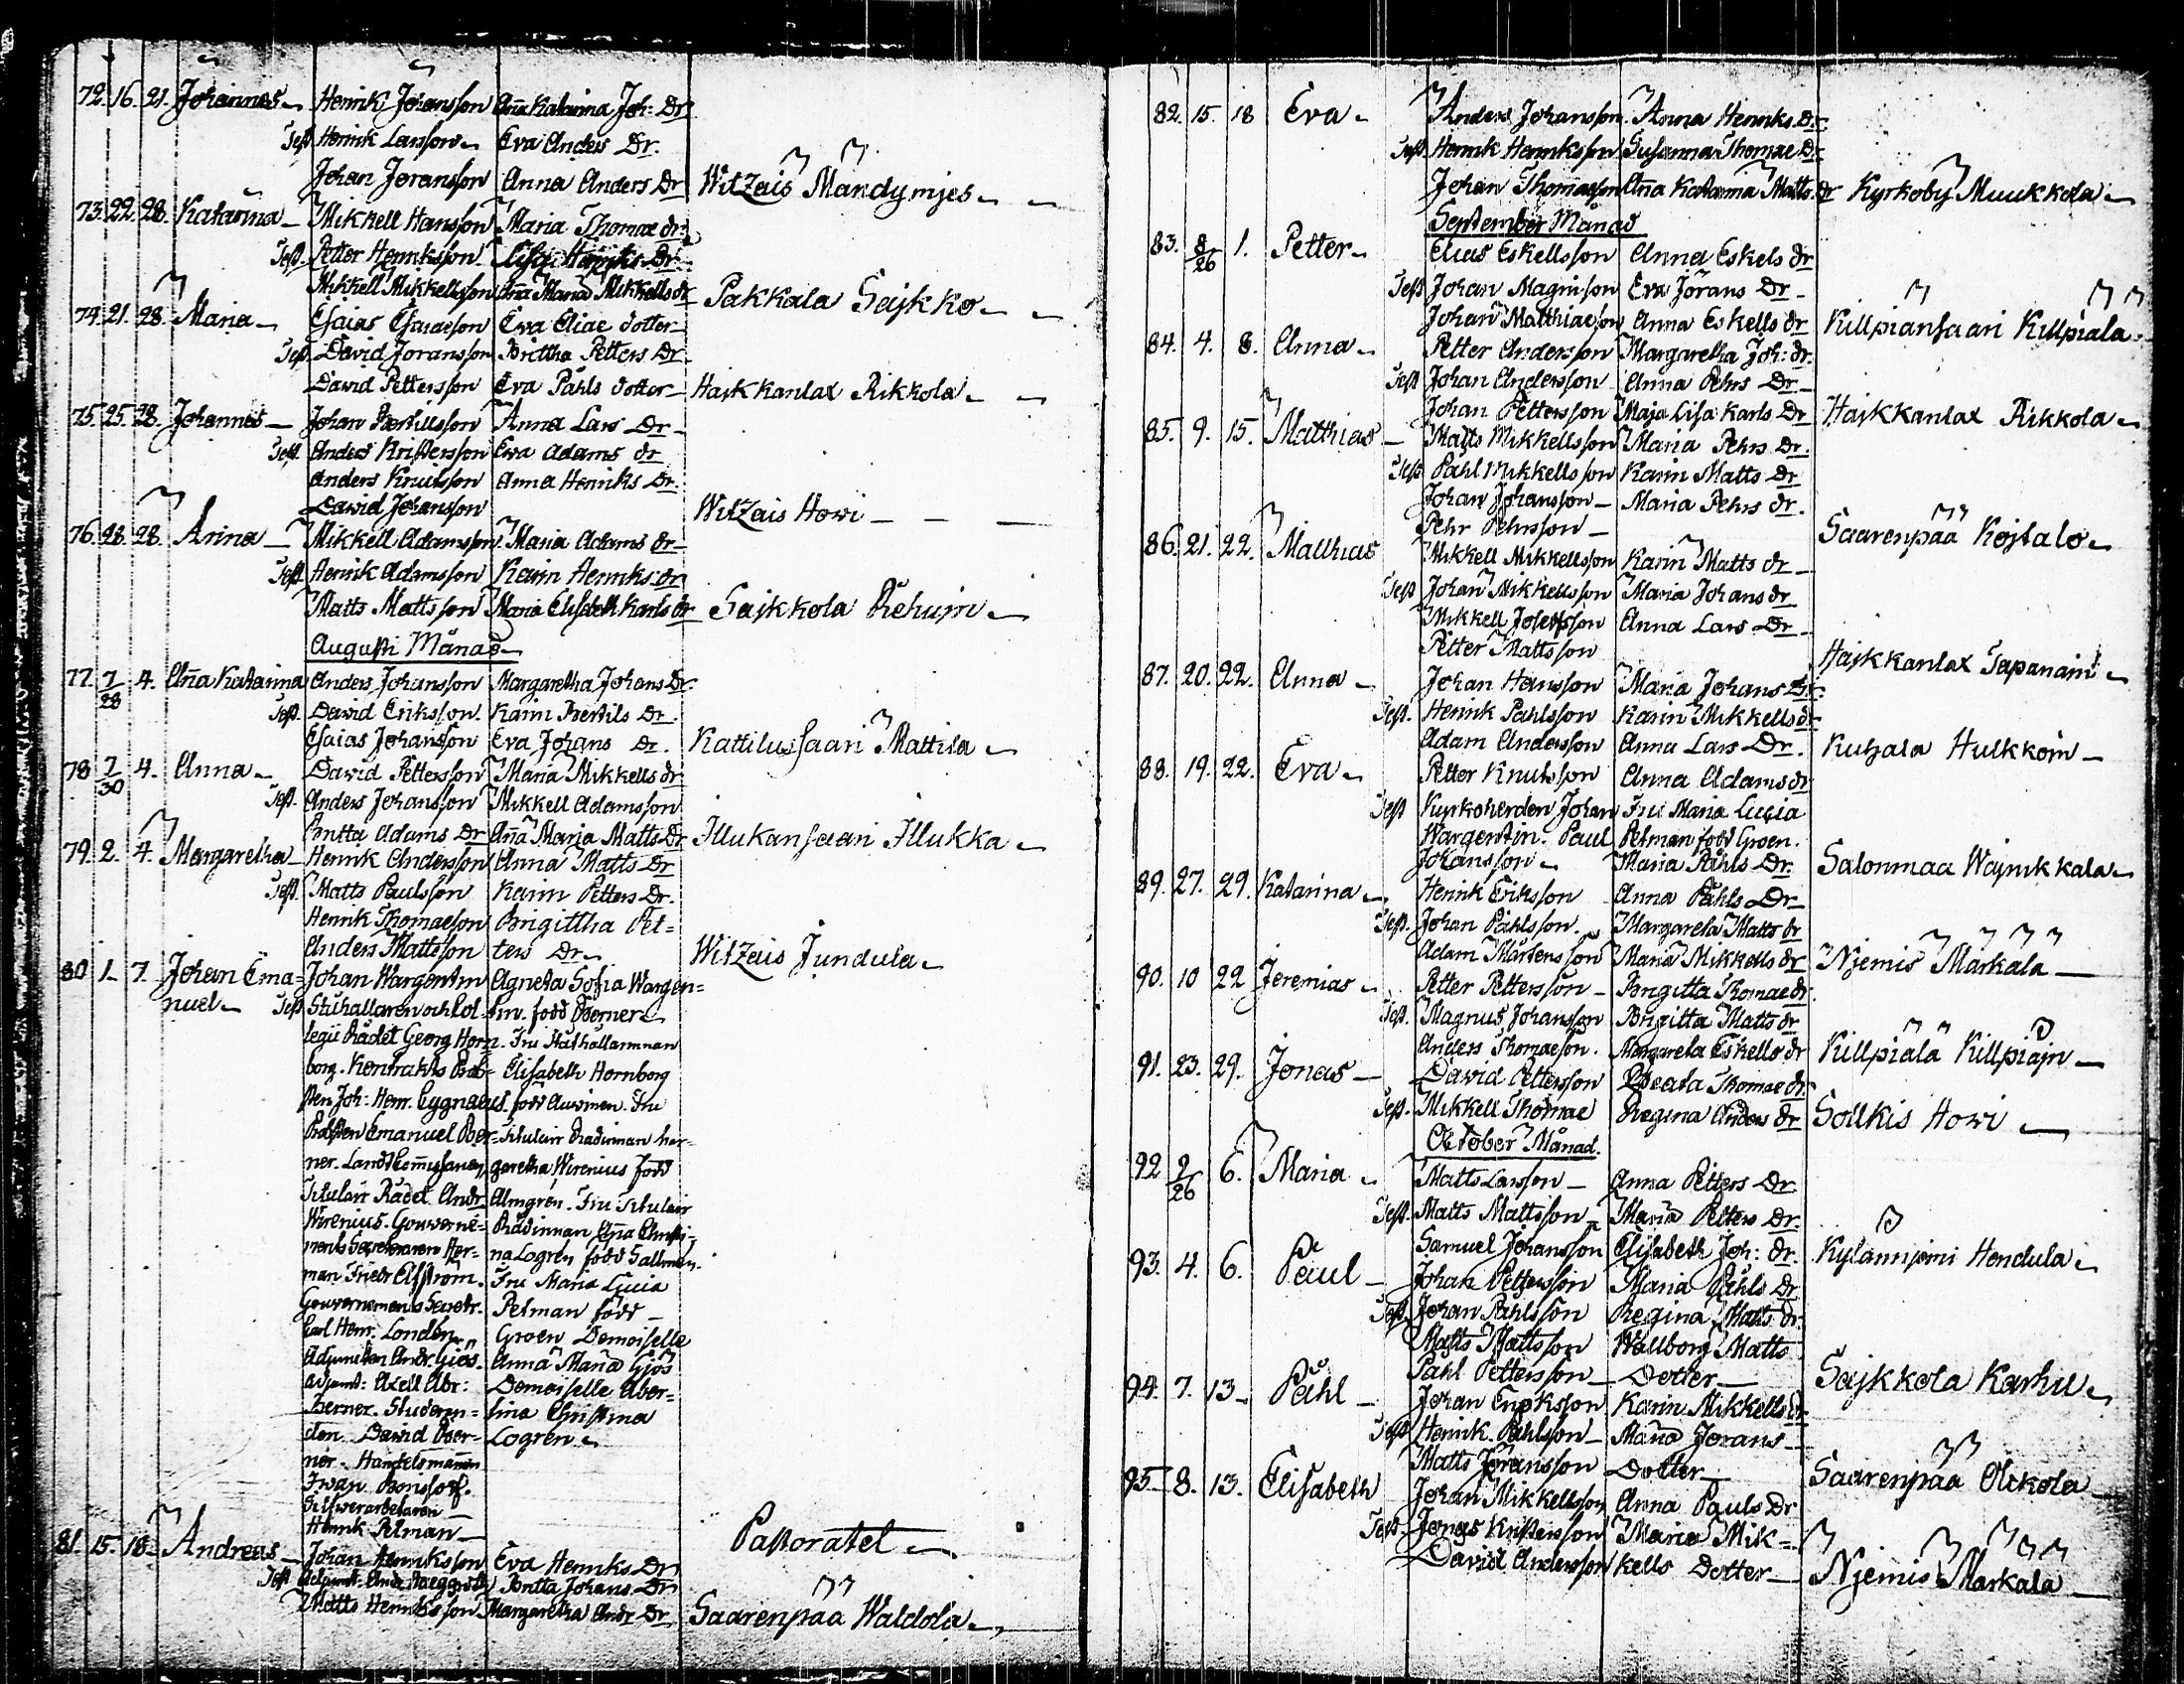 72. 16. 21. Johannes Henrik Johansson Aña Katarina Joh: Dr
Test Henrik Larsson Eva Anders Dr.
Johan Joransson Anna Anders Dr Witzais Mändynjes
73. 22. 28. Katarina Mikkell Hansson Maria Thomae dr.
Test. Petter Henriksson
Mikkell Mikkellsson Aña Maria Mikkells dr Pakkala Sajkko
74. 21. 28. Maria Esaias Esaiaeson Eva Eliae dotter
Test. David Joransson Brittha Petters Dr
David Pettersson Eva Påhls dotter Hajkkanlax Rikkola
75. 25. 28. Johannes Johan Bertillsson Anna Lars Dr
Test. Anders Kristersson Eva Adams dr
Anders Knutsson Anna Henriks Dr.
David Johansson Witzais Howi
76. 28. 28. Anna Mikkell Adamsson Maria Adams dr
Test Henrik Adamsson Karin Henriks dr
Matts Mattsson Maria Elisabeth Karls dr Sajkkola Rehuin
Augusti Månad
77. 7/28 4. Aña Katarina Anders Johansson Margaretha Johans Dr.
Test. David Eriksson Karin Bertils Dr.
Esaias Johansson Eva Johans Dr. Kattilussaari Mattila
78 7/30 4. Anna David Pettersson Maria Mikkells dr
Test. Anders Johansson Mikkell Adamsson
Britta Adams Dr Aña Maria Matts Dr Illukansaari Illukka
79. 2. 4. Margaretha Henrik Andersson Anna Matts Dr
Test. Matts Paulsson Karin Petters Dr.
Henrik Thomaeson Brigittha Pet=
Anders Mattsson ters Dr. Witzais Jundula
80 1 7. Johan Ema= Johan Wargentin Agneta Sofia Wargen=
nuel Test Ståthallaren och Col= tin. född Berner
legii Rådet Georg Horn Fru Ståthållarinnan
borg. Kontrakts Pro= Elisabeth Hornborg
sten Joh: Henr. Cygnaeus född Fru
Prosten Emanuel Ber= Titulair Rådinnan Mar=
ner. garetha Wirenius född
Titulair Rådet Andr. Almgren. Fru Titulair
Wirenius. Gouverne= Rådinnan Aña Christi=
ments Secreteraren Her= na Logren född Sallmén.
man Friedr Alfström. Fru Maria Lucia
Gouvernements Secretr. Petman född
Carl Henr. Londén Groen Demoiselle
Adjuncten Andr. Gjös. Anna Maria Gjös
Adjunct: Axell Abr: Demoiselle Aber=
Berner. Studeren= tina Christina
den David Ber= Logren
ner. Handelsmannen
Iwan Borissoff.
Silfwerarbetaren
Henrik Petman Pastoratet
81. 15. 18. Andreas Johan Henriksson Eva Henriks Dr
Test Adjunct: Andr. Britta Johans Dr
Matts Henriksson Margaretha Andr Dr Saarenpää Waldola
82. 15. 18 Eva Anders Johansson Anna Henriks Dr.
Test Henrik Henriksson Susanna Thomae Dr
Johan Thomaeson Aña Katarina Matts dr Kyrkoby Muukkola
September Månad
83. 8/26 1. Petter Elias Eskellsson Anna Eskels dr
Test Johan Magnisson Eva Jörans Dr
Johan Matthiaeson Anna Eskells dr Killpiänsaari Killpiälä
84. 4. 8. Anna Petter Andersson Margaretha Joh: dr.
Test Johan Andersson Anna Pehrs Dr
Johan Pettersson Maja Lisa Karls Dr Hajkkanlax Rikkola
85. 9. 15. Matthias Matts Mikkellsson Maria Pehrs Dr.
Test Påhl Mikkellsson Karin Matts dr
Johan Johansson Maria Pehrs dr.
Pehr Pehrsson Saarenpää Kojtalo
86. 21. 22. Matthias Mikkell Mikkellsson Karin Matts dr
Test Johan Mikkellsson Maria Johans dr
Mikkell Josefsson Anna Lars Dr
Petter Mattsson Hajkkanlax Tapanain
87. 20. 22. Anna Johan Hansson Maria Johans Dr.
Test. Henrik Påhlsson Karin Mikkells dr
Adam Andersson Anna Lars Dr. Kuhala Hulkkoin
88. 19. 22. Eva Petter Knutsson Anna Adams dr
Test Kyrkoherden Johan Fru Maria Lucia
Wargentin. Paul Petman född Groen.
Johansson Maria Påhls Dr. Salonmaa Wäjnikkala
89. 27. 29. Katarina Henrik Eriksson Anna Påhls Dr
Test. Johan Påhlsson. Margareta Matts dr
Adam Mårtensson Maria Mikkells dr Njemis Märkälä
90. 10 22 Jeremias Petter Pettersson Brigitta Thomae dr
Test. Magnus Johansson Brigitta Matts dr
Anders Thomaeson. Margareta Eskells dr Killpiälä Killpiäjn
91. 23. 29. Jonas David Pettersson Beata Thomae dr.
Test. Mikkell Thomae Regina Anders dr Sollkis Howi
October Månad.
92 9/26 6. Maria Matts Larsson Anna Petters Dr
Test. Matts Mattsson Maria Petters Dr.
Samuel Johansson Elisabeth Joh: dr. Kylänniemi Hendula
93. 4. 6. Paul Johan Pettersson Maria Påhls Dr
Test Johan Påhlsson Regina Matts dr.
Matts Mattsson Wallborg Matts
Påhl Pettersson Dotter Sajkkola Karhu
94. 7. 13. Påhl Johan Eriksson Karin Mikkells dr
Test Henrik Påhlsson Maria Jorans
Matts Joransson Dotter Saarenpää Olckola
95. 8. 13. Elisabeth Johan Mikkellsson Anna Pauls Dr
Test. Jonas Kristersson Maria Mik=
David Andersson kells Dotter Njemis Märkälä